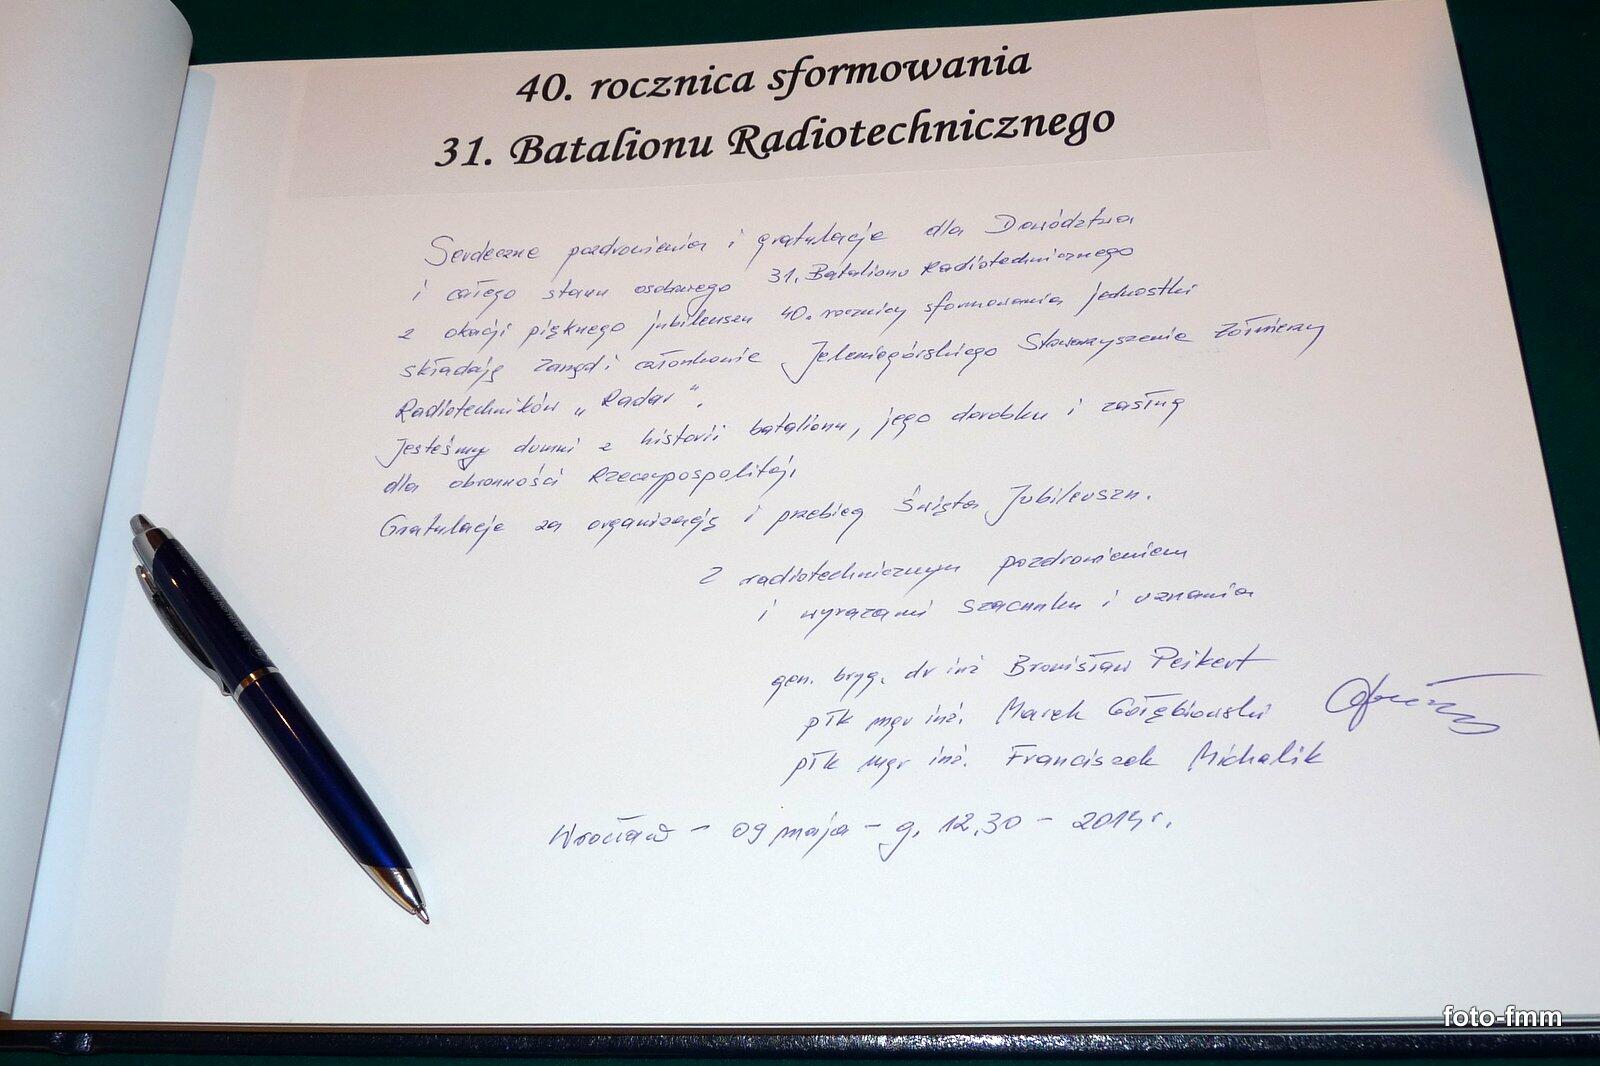 40. rocznica sformowania
31. Batalionu Radiotechnicznego
Serdeczne pozdrowienia i gratulacje dla Dowództwa
i całego stanu osobowego 31. Batalionu Radiotechnicznego
z okazji pięknego jubileuszu 40. rocznicy sformowania jednostki
składają Zarząd i członkowie Jeleniogórskiego Stowarzyszenie Żołnierzy
Radiotechników „Radar".
Jesteśmy dumni z historii batalionu, jego dorobku i zasług
dla obronności Rzeczypospolitej.
Gratulacje za organizację i przebieg Święta Jubileuszu.
Z radiotechnicznym pozdrowieniem
i wyrazami szacunku i uznania
gen. bryg. dr inż Bronisław Peikert
płk mgr inż. Marek Gołębiowski
płk mgr inż. Franciszek Michalik
Wrocław - 09 maja - g. 12.30 - 2014 r.
foto-fmm